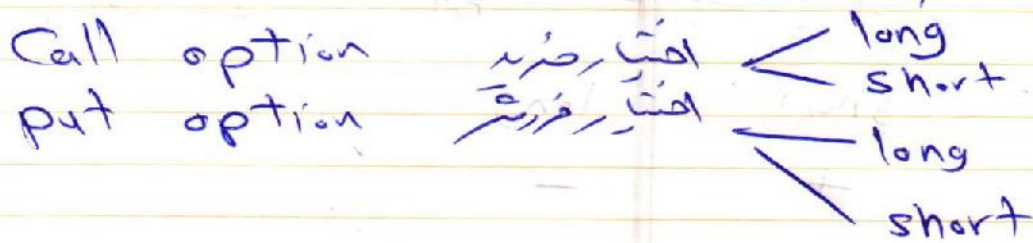 Call option اختیار خرید long
short
put option اختیار فروش long
short